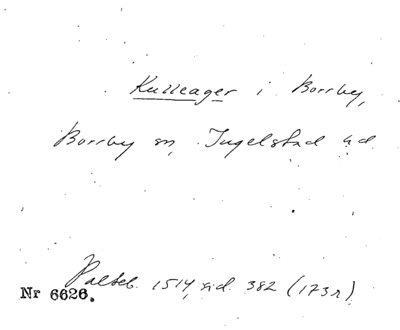 Kulleager i Borrby,
Borrby sn, Ingelstad hd
Palteb. 1514, sid. 382 (173r)
Nr 6626.